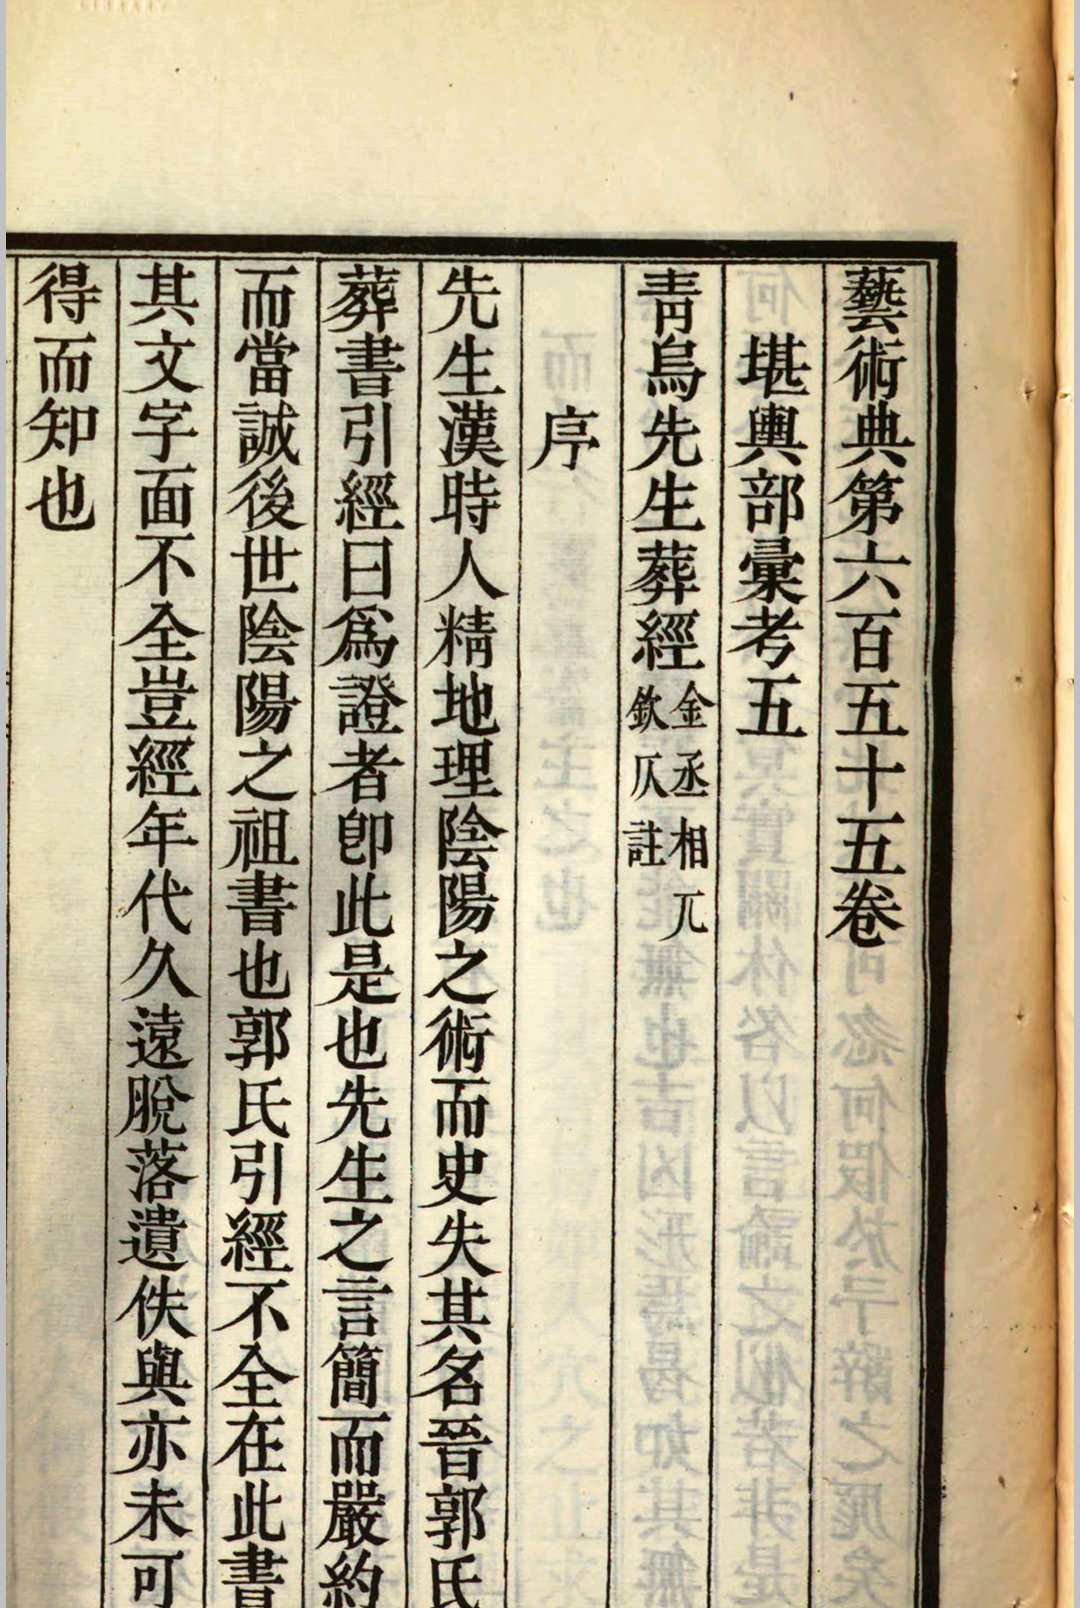 藝術典第六百五十五卷
堪輿部彙考五
靑烏先生葬經金丞相兀
欽仄註
序
先生漢時人精地理陰陽之術而史失其名晉郭氏
葬書引經曰爲證者卽此是也先生之言簡而嚴約
而當誠後世陰陽之祖書也郭氏引經不全在此書
其文字面不全豈經年代久遠脫落遺佚與亦未可
得而知也